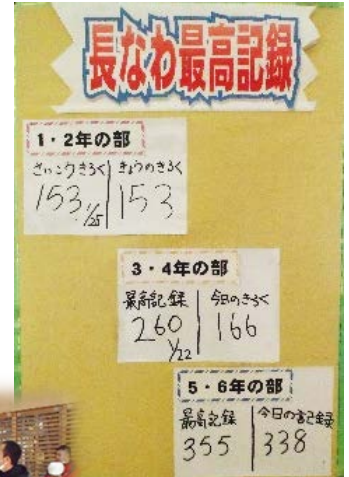 長なわ最高記録
1・2年の部
さいこうきろく きょうのきろく
153 1/25 153
3・4年の部
最高記録 今日のきろく
260 1/22 166
5・6年の部
最高記録 今日の記録
355 338